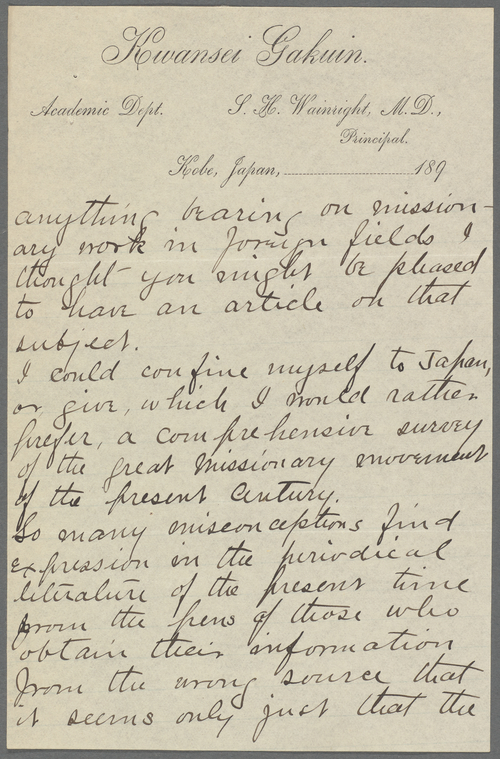 Kwansei Gakuin.
Academic Dept. S. H. Wainright, M.D.,
Principal.
Kobe, Japan, 189
anything bearing on mission-
ary work in foreign fields I
thought you might be pleased
to have an article on that
subject.
I could confine myself to Japan,
or give, which I would rather
prefer, a comprehensive survey
of the great missionary movement
of the present century.
So many misconceptions find
expression in the periodical
literature of the present time
from the pens of those who
obtain their information
from the wrong source that
it seems only just that the